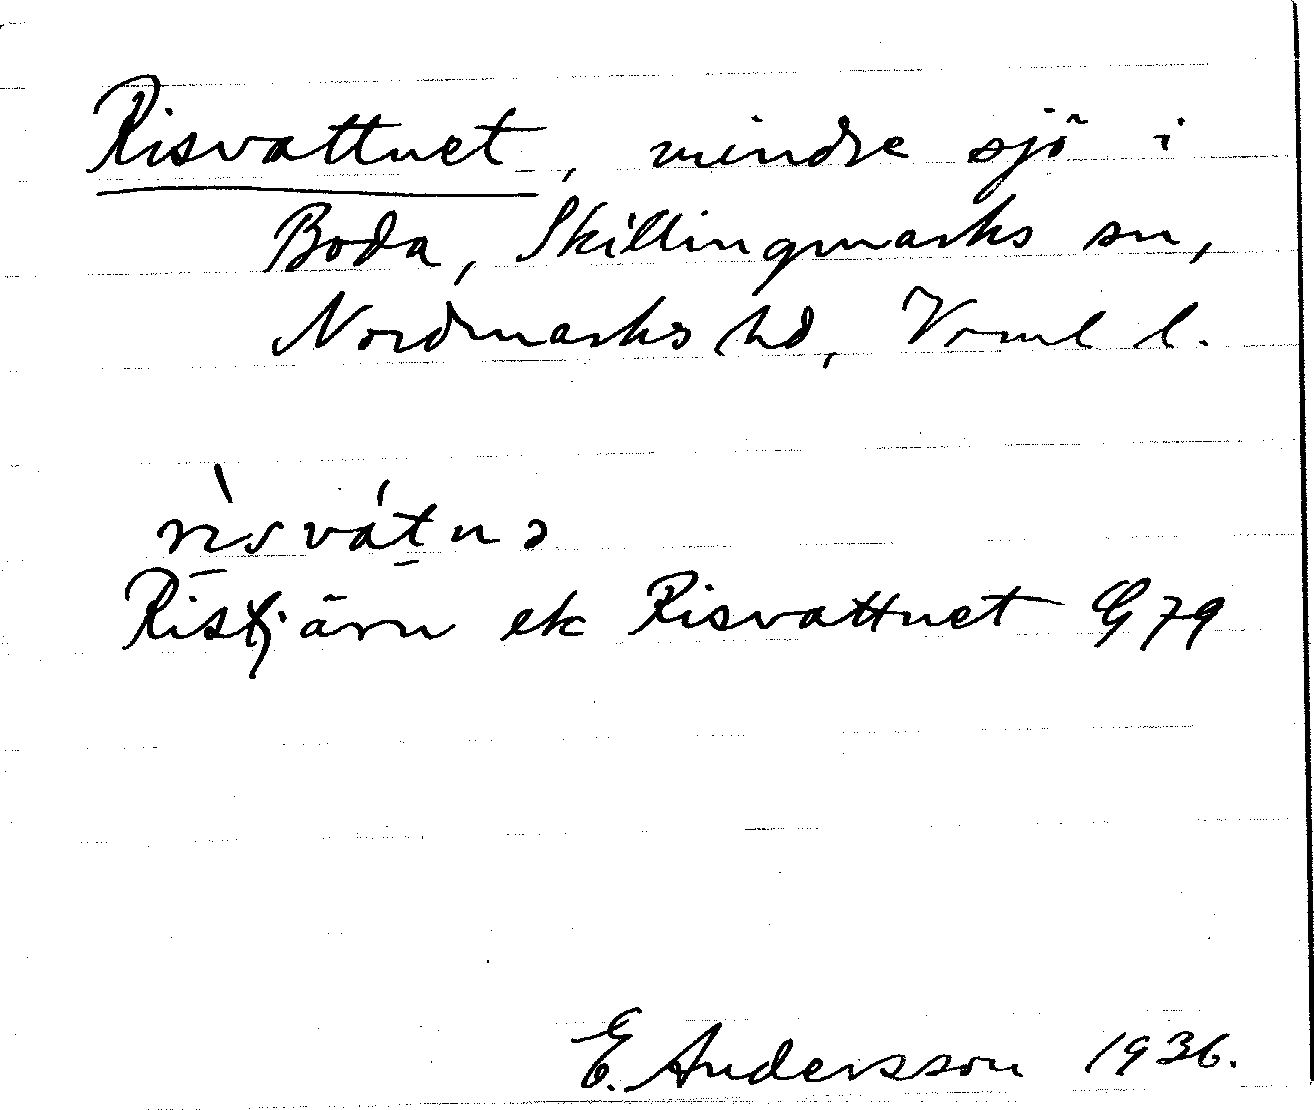 Risvattnet, mindre sjö i
Boda, Skillingmarks sn,
Nordmarks hd, Vrml l.
rìsvátnə
Ristjärn ek Risvattnet G 79
E. Andersson 1936.